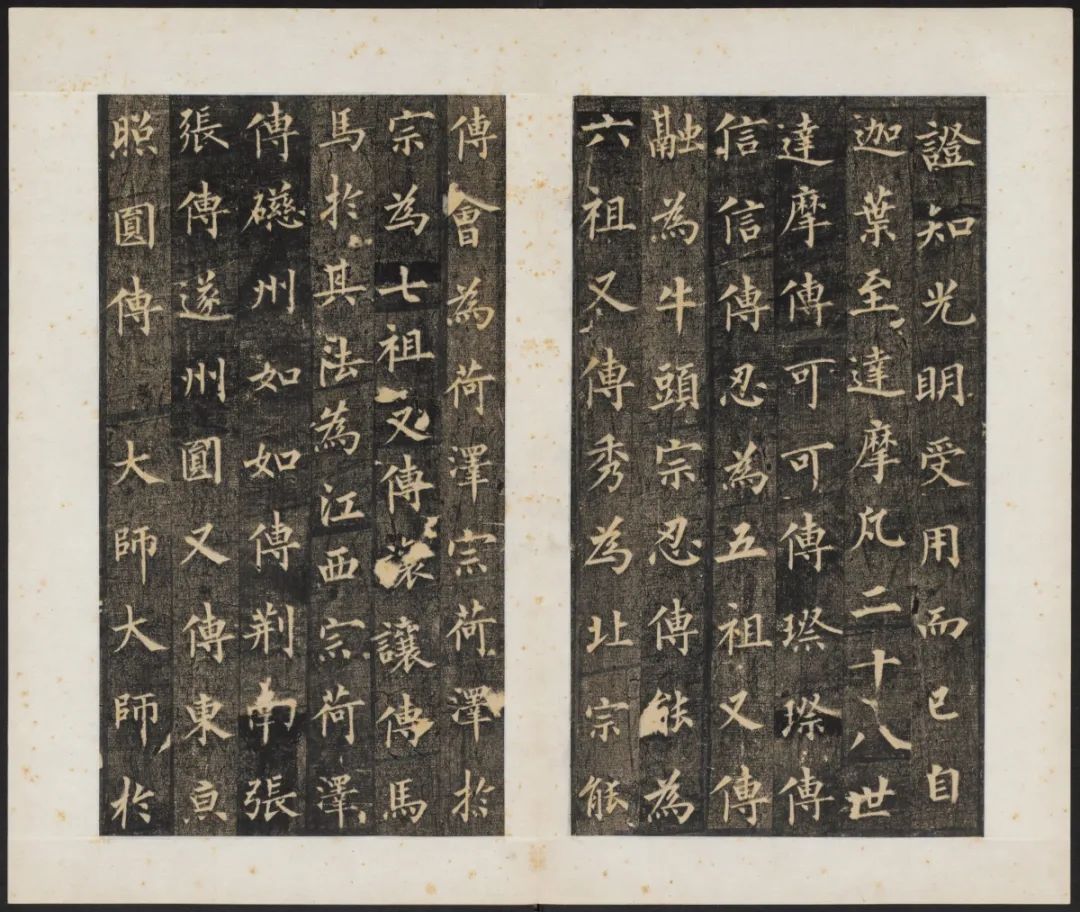 證知光明受用而已自
迦葉至達摩凡二十八世
達摩傳可可傳璨璨傳
信信傳忍為五祖又傳
融為牛頭宗忍傳能能為
六祖又傳秀為北宗能
傳會為荷澤宗荷澤於
宗為七祖又傳讓讓傳馬
馬於其法為江西宗荷澤
傳礠州如如傳荆南張
張傳遂州圓又傳東京
照圓傳大師大師於